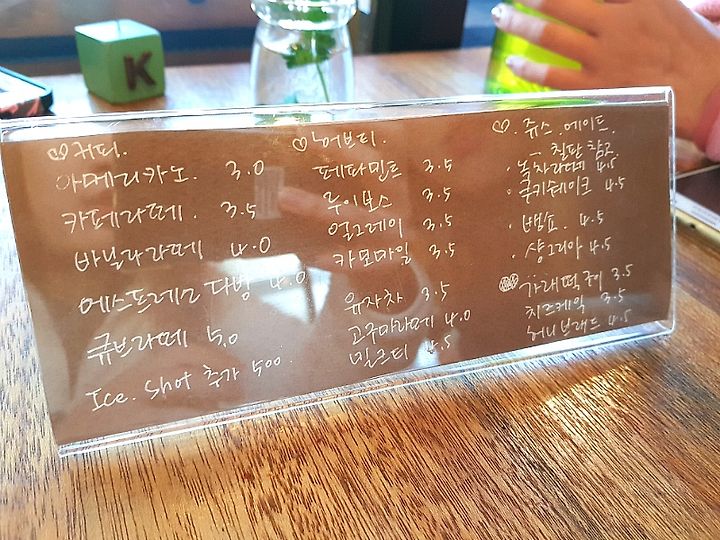 K
커피.
아메리카노. 3.0
카페라떼. 3.5
바닐라라떼 4.0
에스프레소 다방 4.0
큐브라떼 5.0
Ice. Shot 추가 500.
허브티.
페퍼민트 3.5
루이보스 3.5
얼그레이 3.5
카모마일 3.5
유자차 3.5
고구마라떼 4.0
밀크티 4.5
. 쥬스. 에이드.
- 칠판 참고
. 녹차라떼 4.5
. 쿠키쉐이크 4.5
. 뱅쇼. 4.5
. 샹그리아 4.5
가래떡구이 3.5
치즈케익 3.5
허니브래드 4.5